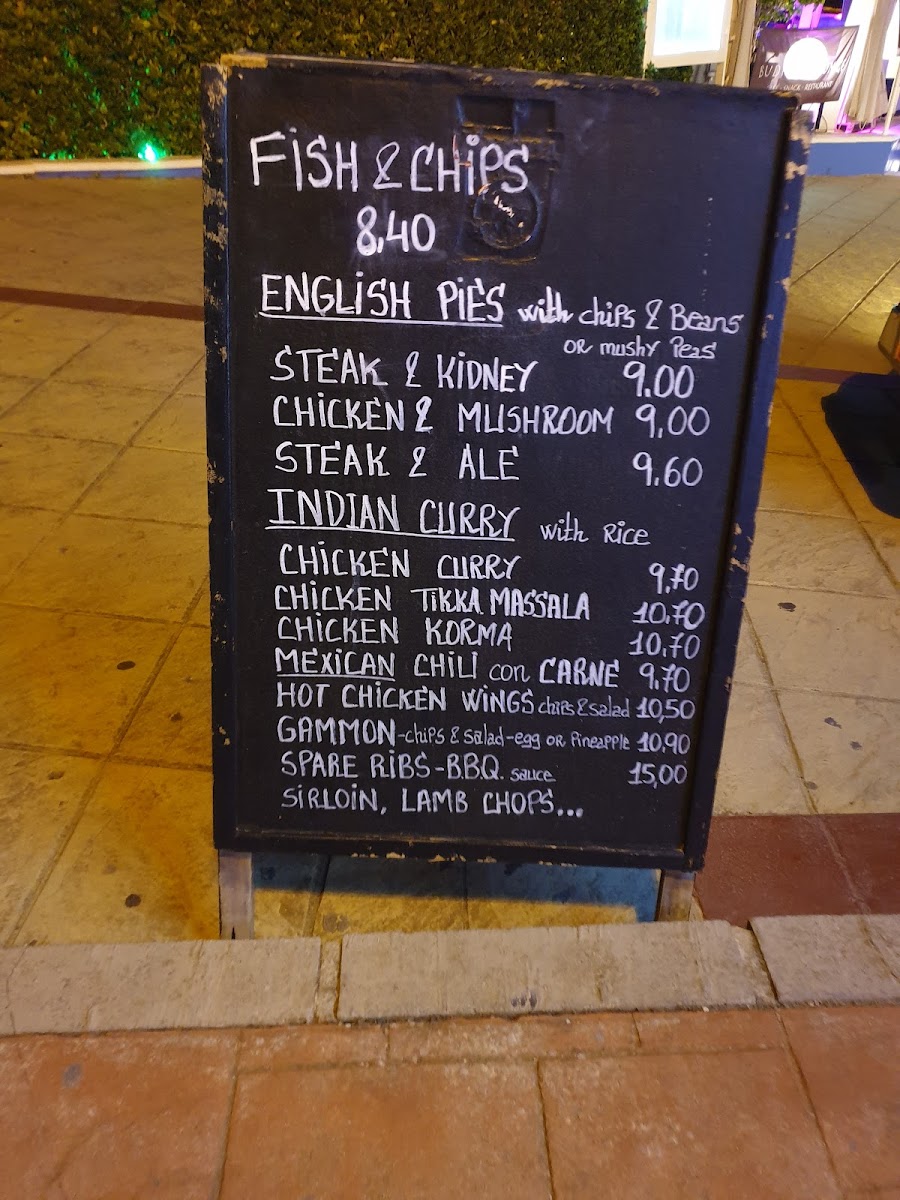 FiSH & CHiPS
8,40
ENGLiSH PiES with chips & Beans
OR mushy Peas
STEAK & KiDNEY 9.00
CHiCKEN & MUSHROOM 9,00
STEAK & ALE 9.60
INDIAN CURRY with Rice
CHiCKEN CURRY 9,70
CHiCKEN TiKKA MASSALA 10,70
CHiCKEN KORMA 10,70
MEXiCAN CHiLi con CARNE 9,70
HOT CHiCKEN WiNGS chips & salad 10,50
GAMMON-chips & salad-egg OR Pineapple 10,90
SPARE RiBS-B.B.Q. sauce 15,00
SiRLOiN, LAMB CHOPS...
RESTAURANT